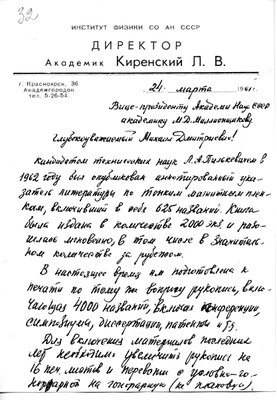 32
ИНСТИТУТ ФИЗИКИ СО АН СССР
ДИРЕКТОР
Академик Киренский Л. В.
г. Красноярск, 36
Академгородок
тел. 5-26-54.
24 марта 196 г.
Вице-президенту Академии Наук СССР
академику М.Д. Миллионщикову
глубокоуважаемый Михаил Дмитриевич!
кандидатом технических наук Л.А. в
1962 году был опубликован аннотированный ука-
затель литературы по тонким магнитным плен-
кам, включивший в себя 625 названий. Книга
была издана в количестве 2000 экз и разо-
шлась мгновенно, в том числе в значитель-
ном количестве за рубежом.
В настоящее время им подготовлена к
печати по тому же вопросу рукопись, вклю-
чающая 4000 названий, включая конференции,
симпозиумы, диссертации, патенты и
Для включения материалов последних
лет необходимо увеличить рукопись на
16 печ. листов и перевести с условно-го-
норарной на гонорарную (не плановую).